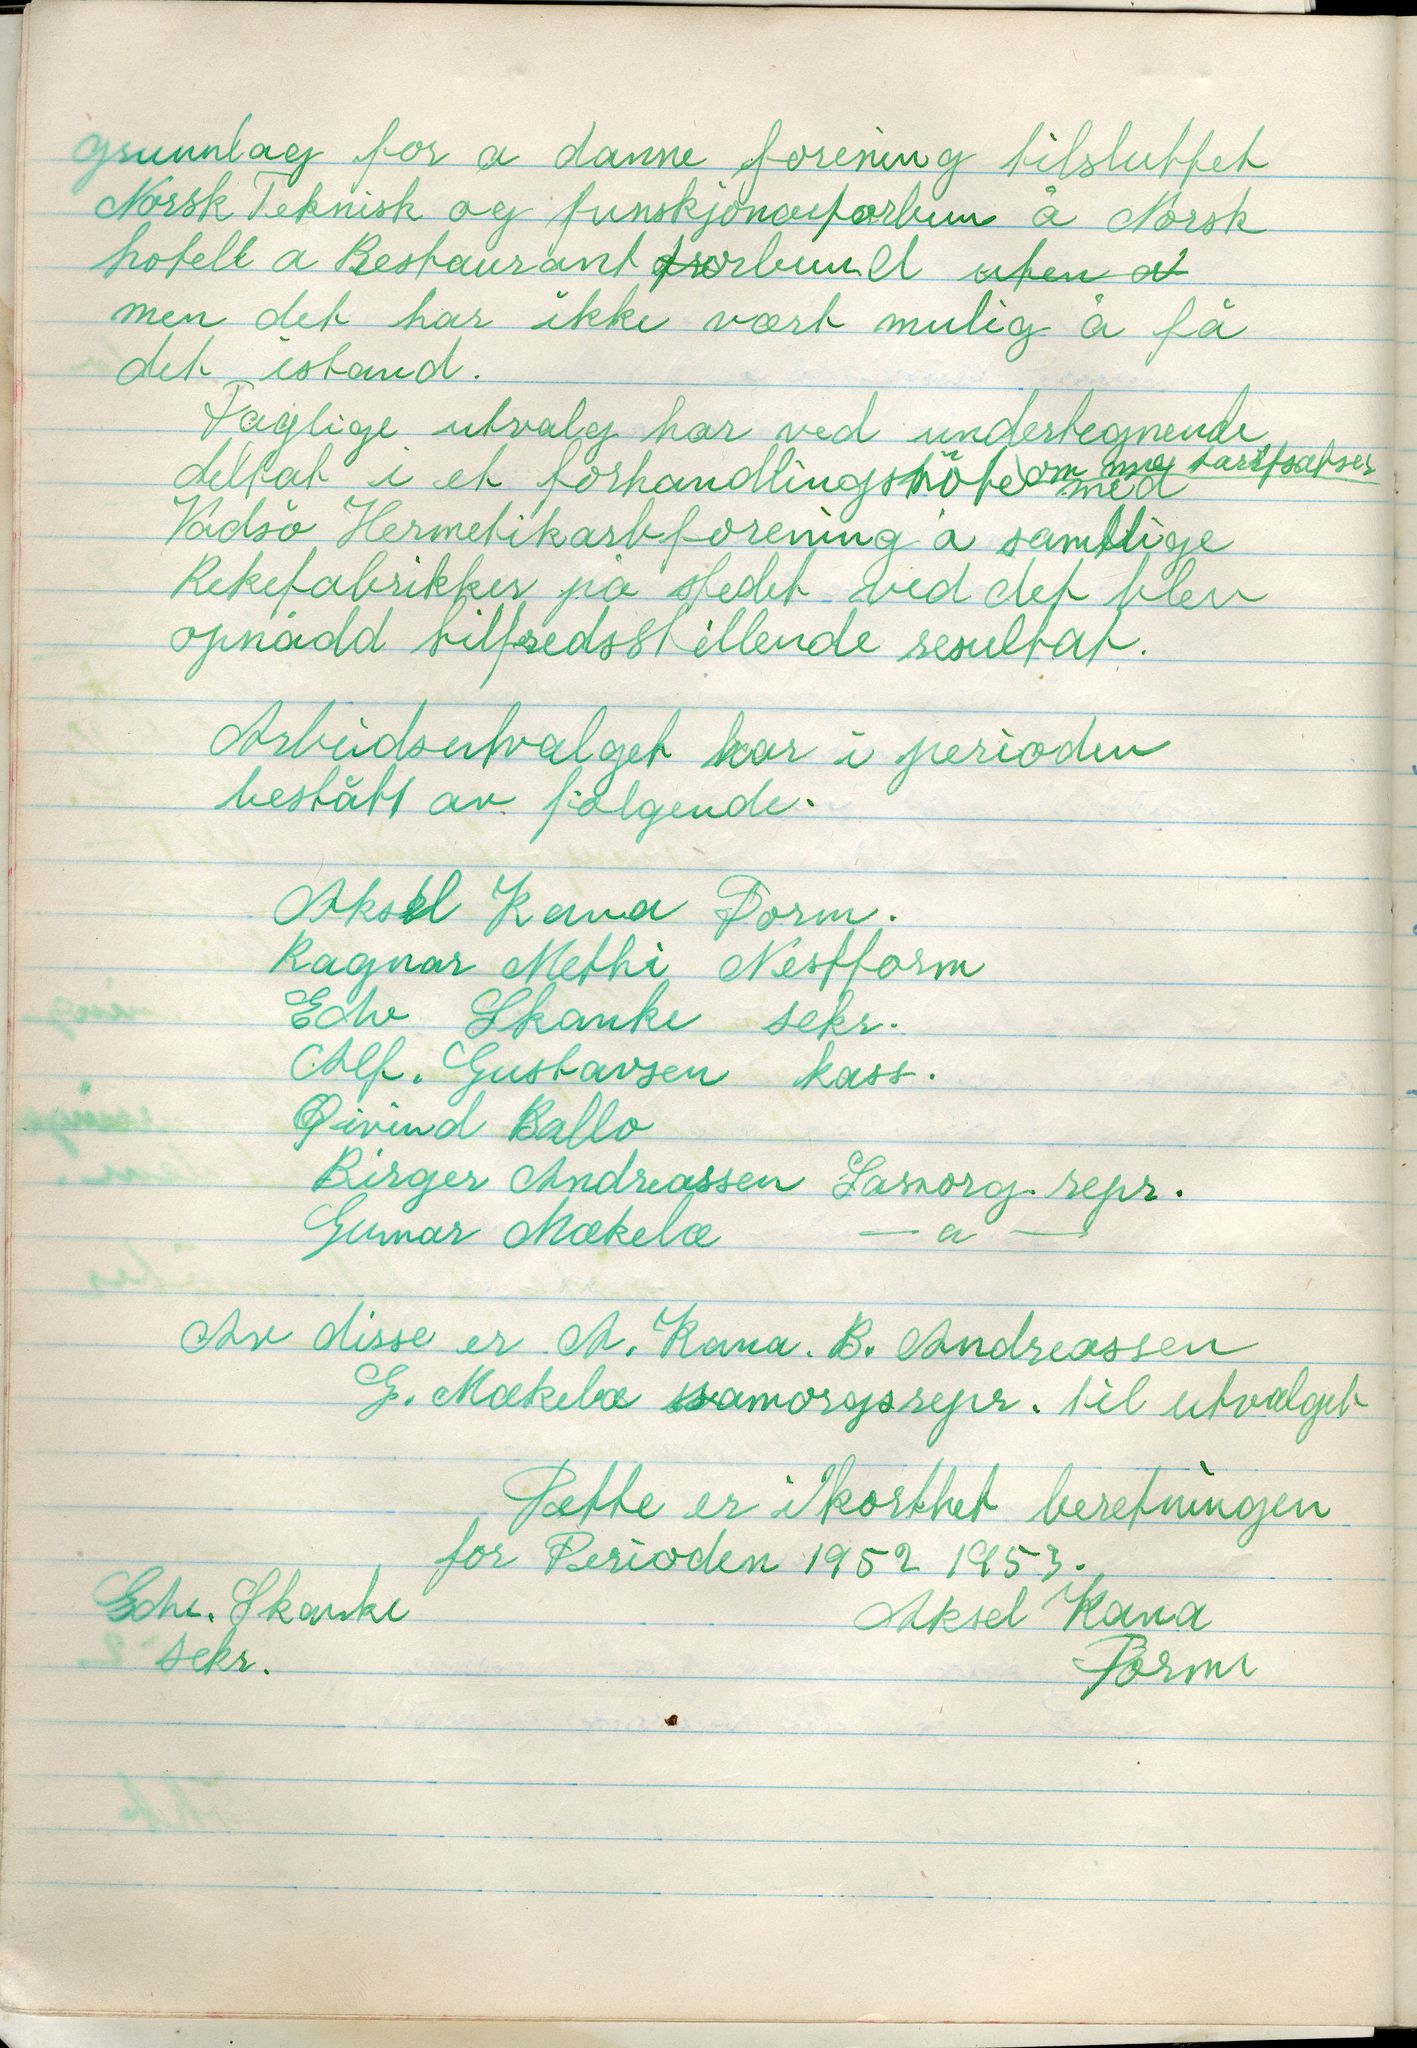 grunnlag for a danne forening tilsluttet
Norsk Teknisk og funskjonærforbun å Norsk
hotell a Restaurant forbund uten å
men det har ikke vært mulig å få
det istand.
Faglige utvalg har ved undertegnende
deltat i et forhandlingsmöte om nye tarifsatser med
Vadsö Hermetikarbforening å samtlige
Rekefabrikker på stedet ved det blev
opnådd tilfredsstillende resultat.
Arbeidsutvalget har i perioden
bestått av følgende.
Aksel Kana Form.
Ragnar Methi Nestform
Edv Skanke sekr.
Alf. Gustavsen kass.
Øivind Ballo
Birger Andreassen Samorg. repr.
Gunnar Mækelæ — a —
Av disse er A. Kana. B. Andreassen
G. Mækelæ samorgsrepr. til utvalget
Dette er i korthet beretningen
for Perioden 1952 1953.
Edv. Skanke Aksel Kana
sekr. Form